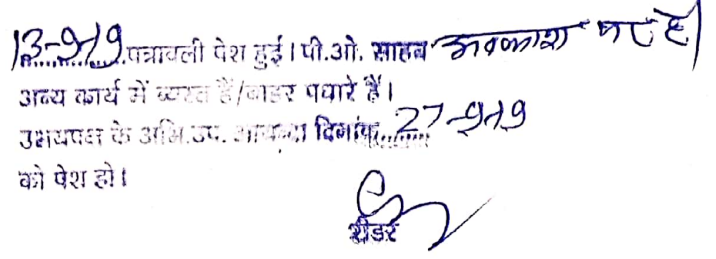 13-9-19 पत्रावली पेश हुई। पी.ओ. साहब अवकाश पर है
अन्य कार्य में व्यस्त हैं/बाहर पधारे हैं।
उभयपक्ष के अभि.उप. आयन्दा दिनांक 27-9-19
को पेश हो।
रीडर